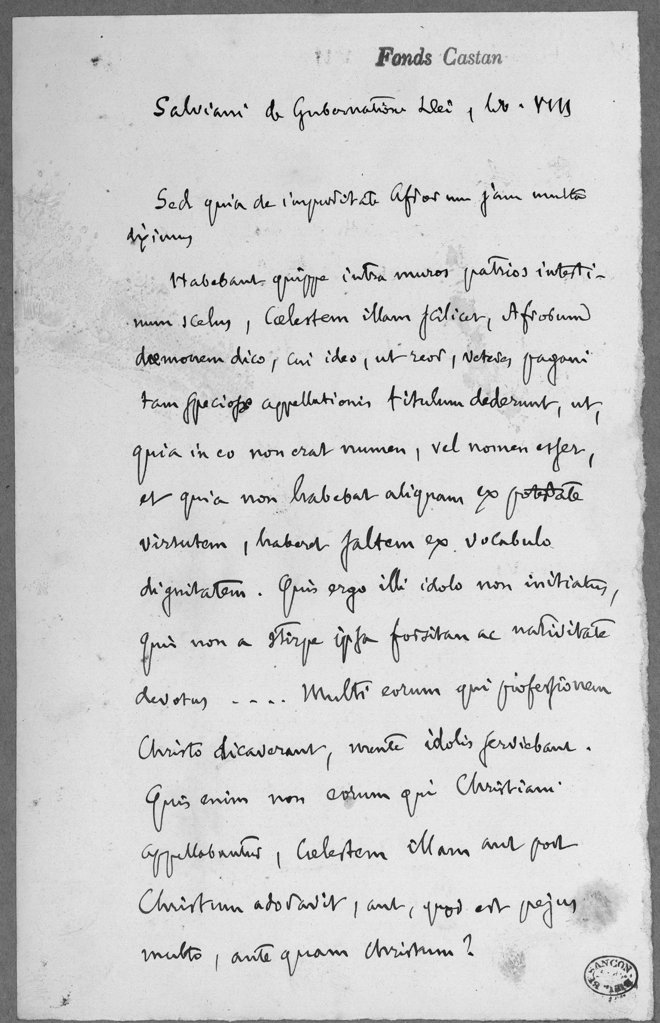 Fonds Castan
Salviani de Gubernatione Dei, lib. VIII
Sed quia de impuritate Afrorum jam multa
diximus
Habebant quippe intra muros patrios intesti-
num scelus, Cœlestem illam scilicet, Afrorum
dæmonem dico, cui ideo, ut reor, veteres pagani
tam speciosæ appellationis titulum dederunt, ut,
quia in eo non erat numen, vel nomen esset,
et quia non habebat aliquam ex potestate
virtutem, haberet saltem ex vocabulo
dignitatem. Quis ergo illi idolo non initiatus,
Quis non a stirpe ipsa forsitan ac nativitate
devotus .... Multi eorum qui professionem
Christo dicaverant, mente idolis serviebant.
Quis enim non eorum qui Christiani
appellabantur, Cœlestem illam aut post
Christum adoravit, aut, quod est pejus
multo, ante quam Christum?
BESANCON